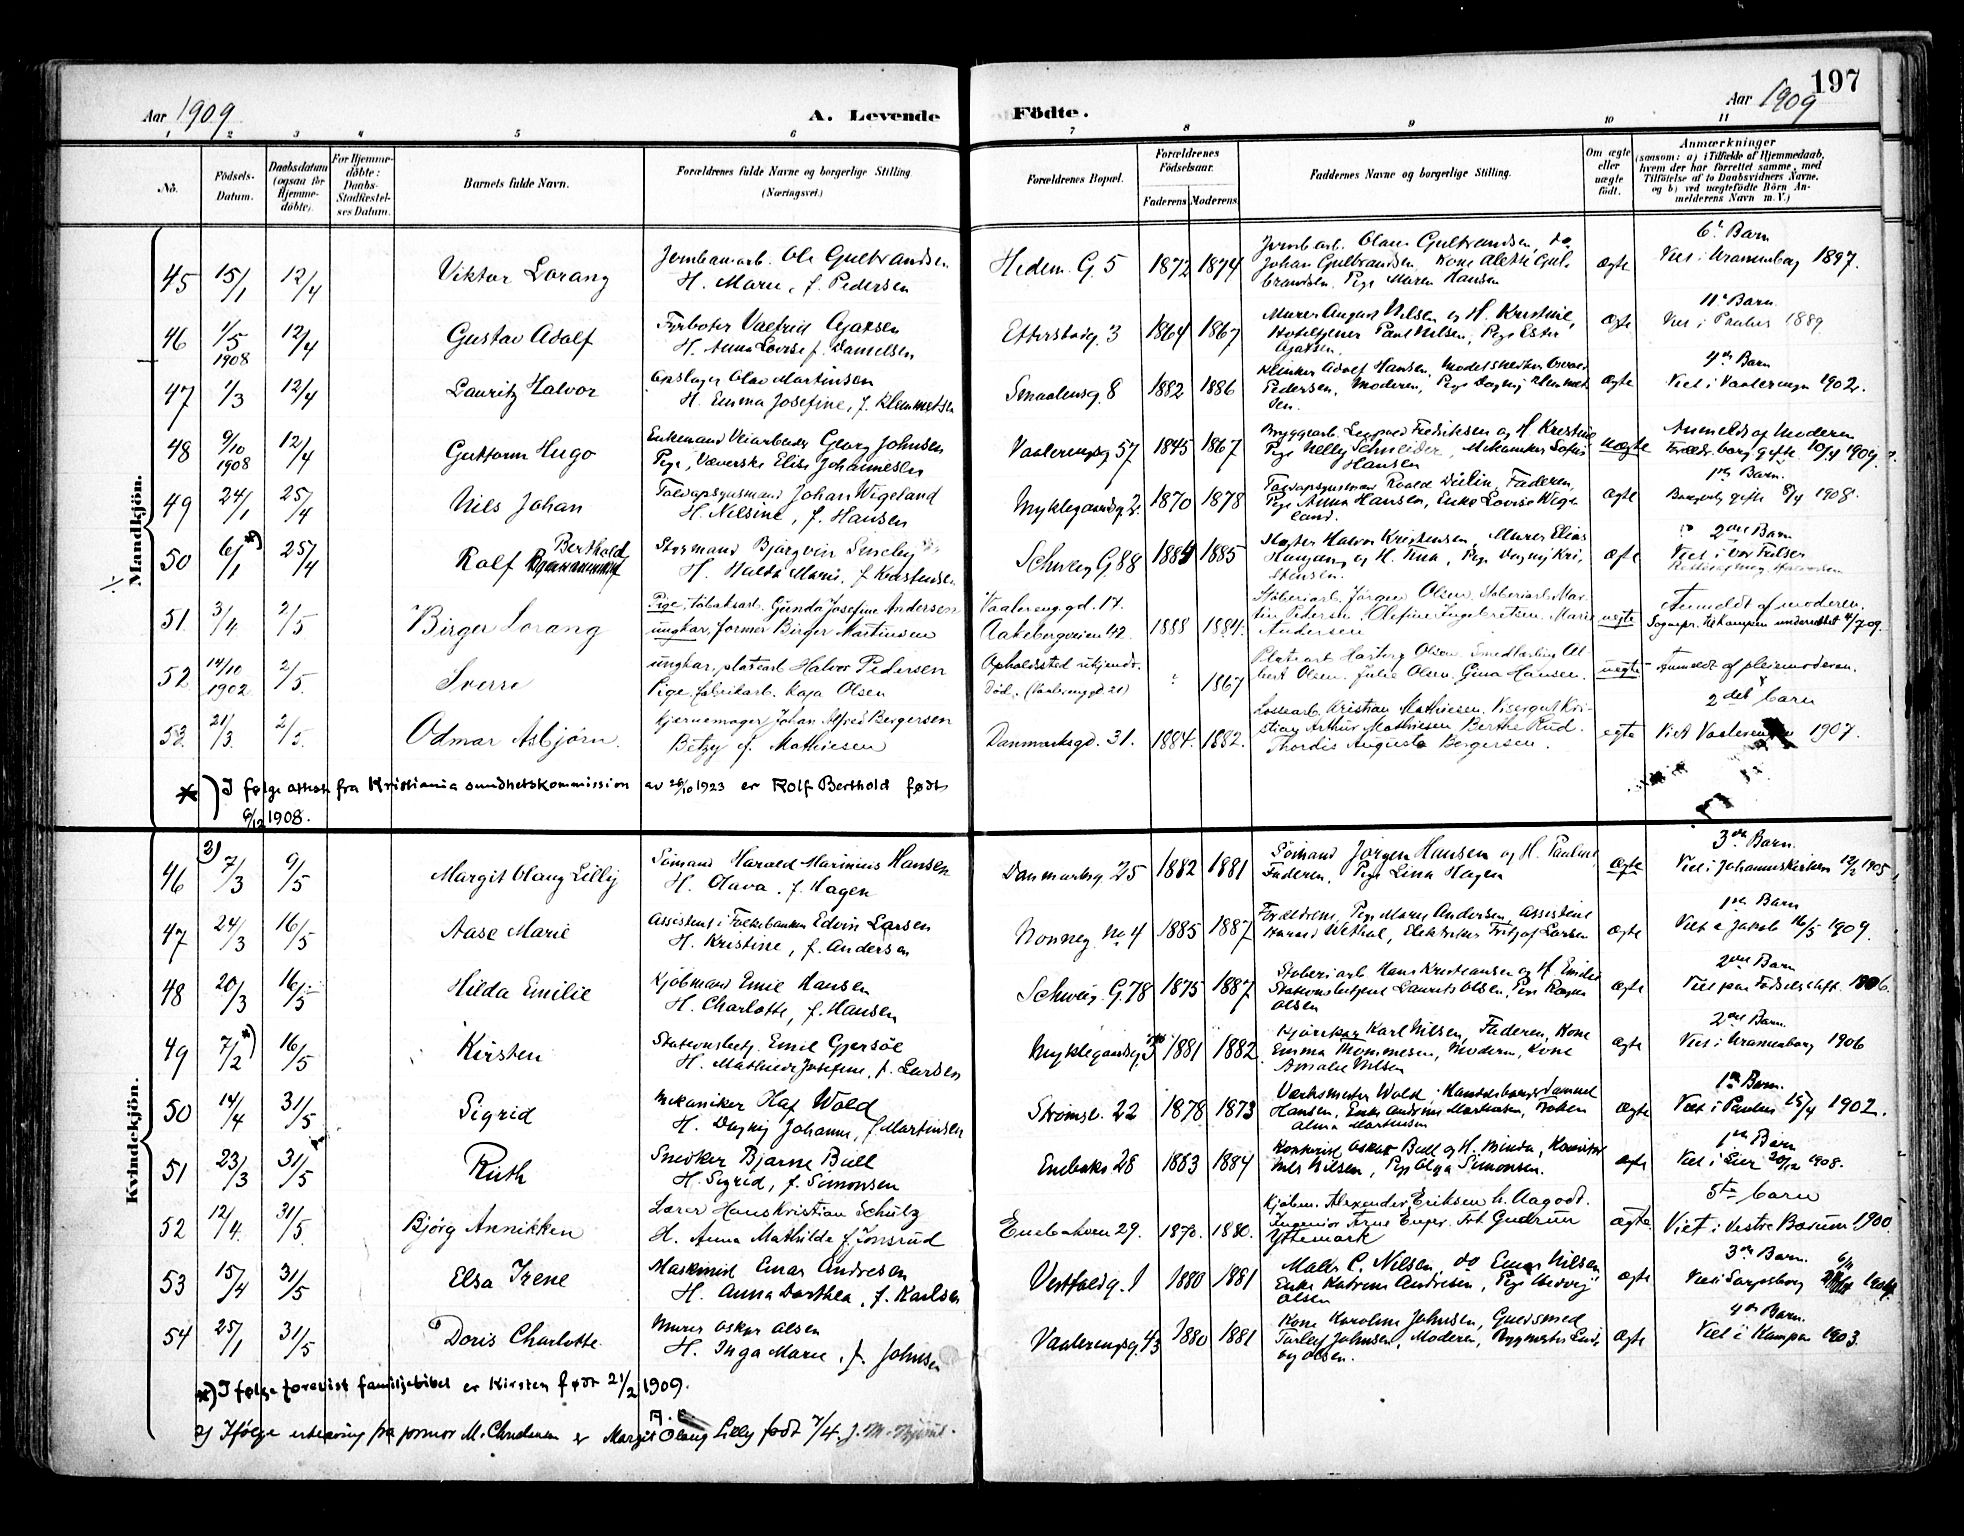 197
Aar 1909
A. Levende Födte.
Aar 1909
1 2 3 4 5 6 7 8 9 10 11
No.
Födsels-Datum.
Daabsdatum (ogsaa for Hjemme-döbte).
For Hjemme-döbte: Daabs-Stadfæstel-ses Datum.
Barnets fulde Navn.
Forældrenes fulde Navne og borgerlige Stilling. (Næringsvei.)
Forældrenes Bopæl.
Forældrenes Födselsaar.
Faderens Moderens
Faddernes Navne og borgerlige Stilling.
Om ægte eller uægte födt.
Anmærkninger
(saasom: a) i Tilfælde af Hjemmedaab,
hvem der har forrettet samme, med
Tilföielse af to Daabsvidners Navne.
og b) ved uægtefödte Börn An-
melderens Navn m. V.)
Mandkjön.
45 15/1 12/4 Viktor Lorang Jernbanearb. Ole Gulbrandsen H. Marie, f. Pedersen Hedem. G. 5 1872 1874 Johan Gulbrandsen, Kone Alette Gul-brandsen, Pige Maren Hansen ægte 6te Barn Viet i Uranienborg 1897.
46 1/5 1908 12/4 Gustav Adolf Fyrbøter Valfrid H. Anna Lovise f. Danielsen Etterstadg. 3 1864 1867 Murer August Nilsen og H. Kristine, Paul Nilsen, Pige Ester ægte 11te Barn Viet i Paulus 1889
47 1/3 12/4 Lauritz Halvor Opslager Olav Martinsen H. Emma Josefine, f. Klemmetsen Smaalensg. 8 1882 1886 Adolf Hansen, Modelsnedker Pedersen, Moderen, Pige Dagny Klemmet-sen. ægte 4de Barn Viet i Vaalerengen 1902.
48 9/10 1908 12/4 Guttorm Hugo Enkemand Veiarbeider Georg Johnsen Pige, Væverske Elise Johannesen Vaalerengg 57 1845 1867 Bryggearb. Leopold Fredriksen og H. Kristine, Pige Nelly Schneider, Mekaniker Hansen uægte Anmeldt af Moderen Foreldr. borg. gifte 10/4 1909.
49 24/1 25/4 Nils Johan Johan Wigeland H. Nilsine, f. Hansen Myklegaardsg 2. 1870 1878 Faderen, Pige Anna Hansen, Enke Lovise Wige-land. ægte 1ste Barn. Borgerlig gifte 8/4 1908.
50 6/1 *) 25/4 Rolf Berthold Styrmand Bjørgvin H. Hulda Marie, f. Kristensen Schweig. G. 88 1884 1885 Sløier Halvor Kristensen, Murer Elias Haugan og H. Tina, Pige Dagny Kri-stensen. ægte 2det Barn Viet i Vor Frelser
51 3/4 2/5 Birger Lorang Pige, tobaksarb. Gunda Josefine Andersen ungkar, former Birger Martinsen Vaalereng.gd. 17. Aakebergveien 42 1888 1884. Støberiarb. Jørgen Olsen, Støberiarb. Mar-tin Pedersen, Olefine Ingebretsen, Marie Andersen uegte Anmeldt af moderen. Sognepr. i Kampen underrettet 4/7 09.
52 14/10 1902 2/5. Sverre ungkar, platearb Halvor Pedersen Pige, fabrikarb. Kaja Olsen Opholdssted ubekjendt. Død. (Vaalerenggd 21) 1867 Platearb Harberg Olsen. Smedlærling Al-bert Olsen. Julie Olsen. Gina Hansen. uegte Anmeldt af pleiemoderen.
53. 21/3. 2/5. Odmar Asbjørn. Kjernemager Johan Alfred Bergersen Betzy f. Mathiesen Danmarksgd. 31. 1884. 1882. Lossearb. Kristian Mathiesen, Visergut Kri-stian Arthur Mathiesen Berthe Rud. Thordis Augusta Bergersen. egte 2det barn Viet Vaalerengen 1907.
*) I følge attest fra Kristiania sundhetskommission av 26/10 1923 er Rolf Berthold født
6/12 1908.
Kvindekjön.
46 2) 7/3 9/5 Margit Olaug Lilly Sømand Harald Marinius Hansen H. Olava, f. Hagen Danmarksg. 25 1882 1881 Sømand Jørgen Hansen og H. Pauline Faderen, Pige Lina Hagen ægte 3de Barn. Viet i Johanneskirken 12/2 1905.
47 24/3 16/5 Aase Marie Assistent i Folkebanken Edvin Larsen H. Kristine, f. Andersen Nonneg. no 4 1885 1887 Forældrene, Pige Marie Andersen, Assistent Harald Wethal, Elektriker Fritjof Larsen ægte 1ste Barn Viet i Jakob 16/5 1909.
48 20/3 16/5 Hilda Emilie Kjøbmand Emil Hansen H. Charlotte, f. Hansen Schweig. G. 78 1875 1887 Støberiarb Hans Kristiansen og H. Emilie Stationsbetjent Laurits Olsen, Pige Ragna Olsen ægte 2det Barn Viet paa Fødselsstift. 1906.
49 7/2 *) 16/5 Kirsten Stationsbetj. Emil Gjersøe H. Mathilde Josefine, f. Larsen Myklegaardsg. 1881 1882 Karl Nilsen, Faderen, Kone Emma Thommesen, Moderen, Kone Amalie Nilsen ægte 2det Barn. Viet i Uranienborg 1906
50 14/4 31/5 Sigrid Mekaniker Olaf Wold H. Dagny Johanne, f. Martinsen Strømsv. 22 1878 1873 Værksmester Wold, Samuel Hansen, Enke Andrine Martinsen, Frøken Alma Martinsen ægte 1ste Barn. Viet i Paulus 15/4 1902.
51 23/3 31/5 Ruth Snedker Bjarne Bull H. Sigrid, f. Simonsen Enebaks 28 1883 1884 Kontorist Oskar Bull og H. Minda, Kontorist Nils Nilsen, Pige Olga Simonsen. ægte 1ste Barn Viet i Lier 20/12 1908.
52 12/4. 31/5. Bjørg Annikken Lærer Hans Kristian Schulz H. Anna Mathilde f. Jonsrud Enebakvn 29. 1870. 1880. Kjøbm. Alexander Eriksen h. Aagodt. Ingeniør Arne Enger. Frk Gudrun Yttemark ægte 5te barn Viet i Vestre Bærum 1900.
53 15/4 31/5 Elsa Irene Maskinist Einar Andresen H. Anna Dorthea, f. Karlsen Vestfoldg. 1 1880 1881 Maler C. Nilsen, do Einar Nilsen Enke Katrine Andresen, Pige Hedvig Olsen ægte 3de Barn. Viet i Sarpsborg
54 25/1 31/5 Doris Charlotte Murer Oskar Olsen H. Inga Marie, f. Johnsen Vaalerengsg. 43 1880 1881 Kone Karoline Johnsen, Guldsmed Torleif Johnsen, Moderen, Olsen. ægte 4de Barn. Viet i Kampen 1903.
*) I følge forevist familjebibel er Kirsten født 21/2 1909.
A. E
2) Ifølge erklæring fra jormor M. Christensen er Margit Olaug Lilly født 7/4.